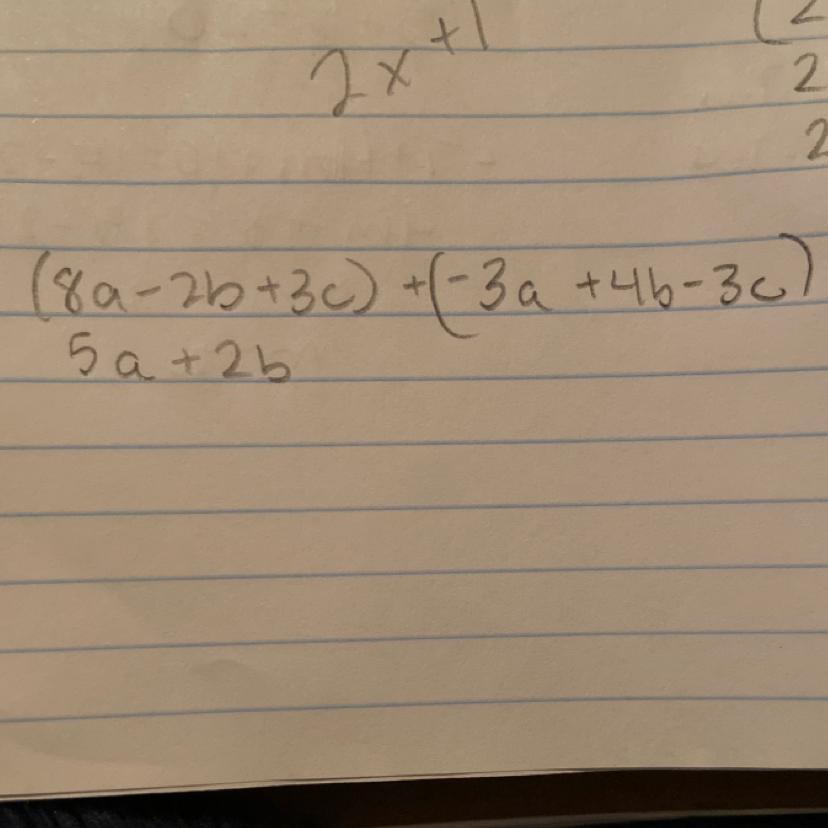 2x+1
(2
2
2
(8a-2b+3c)+(-3a+4b-3c)
5a+2b